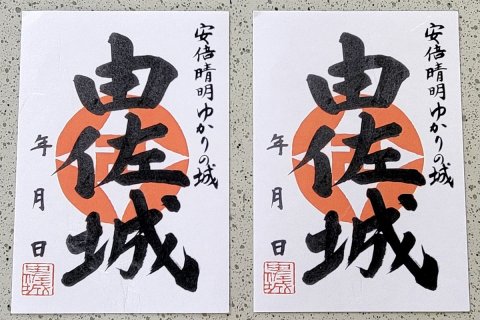 安倍晴明ゆかりの城
由佐城
年月日
由佐城
安倍晴明ゆかりの城
由佐城
年月日
由佐城